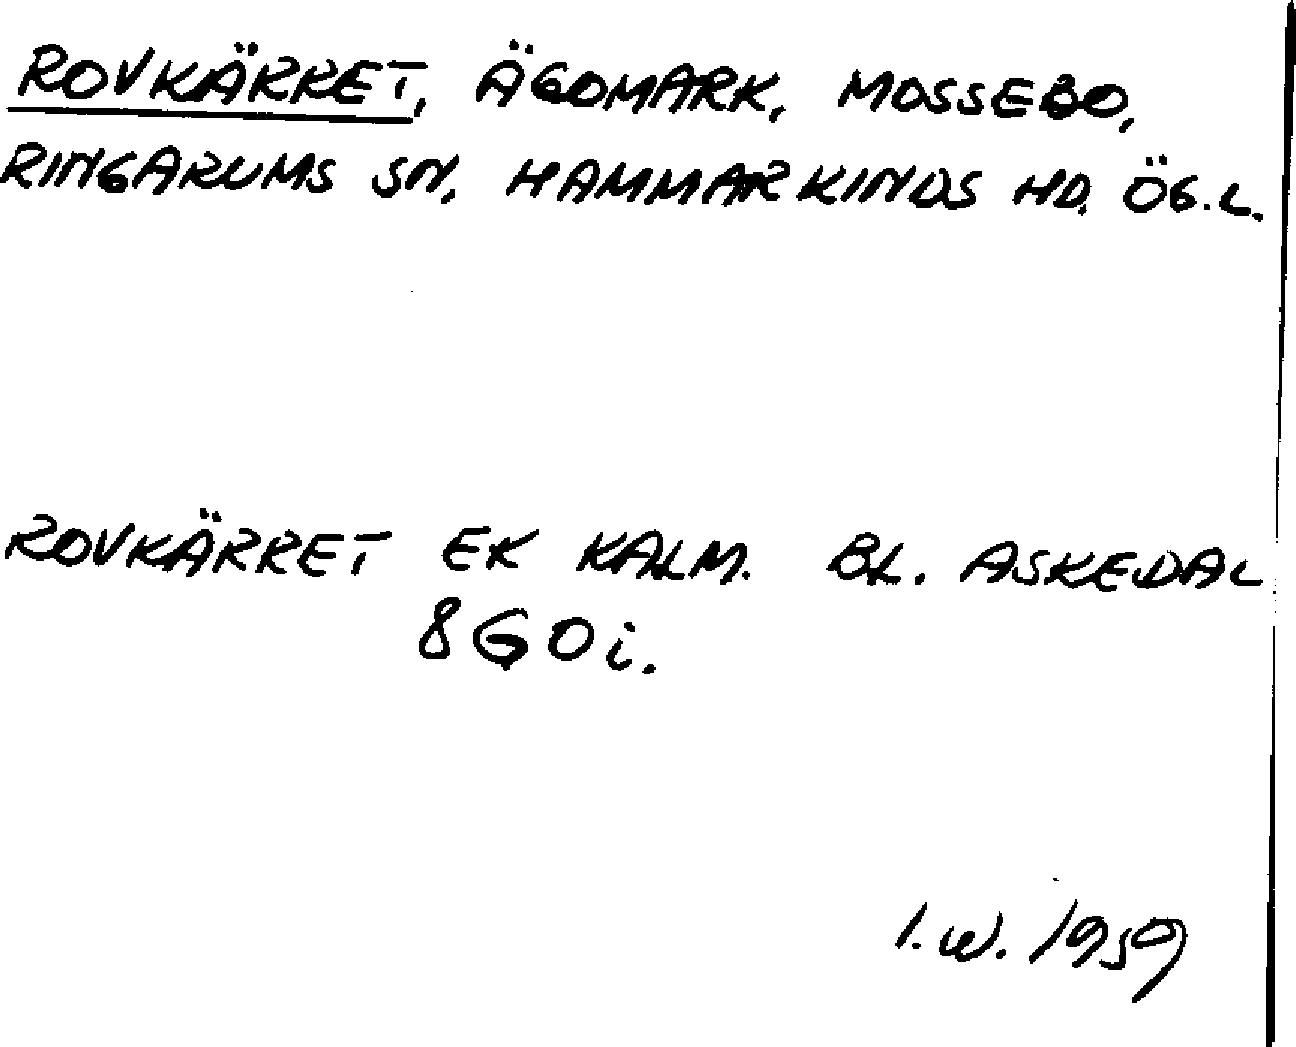 ROVKÄRRET, ÄGOMARK, MOSSEBO,
RINGARUMS SN, HAMMARKINDS HD. ÖG.L.
ROVKÄRRET EK KALM. BL. ASKEDAL
8 G O i.
I.W. 1959